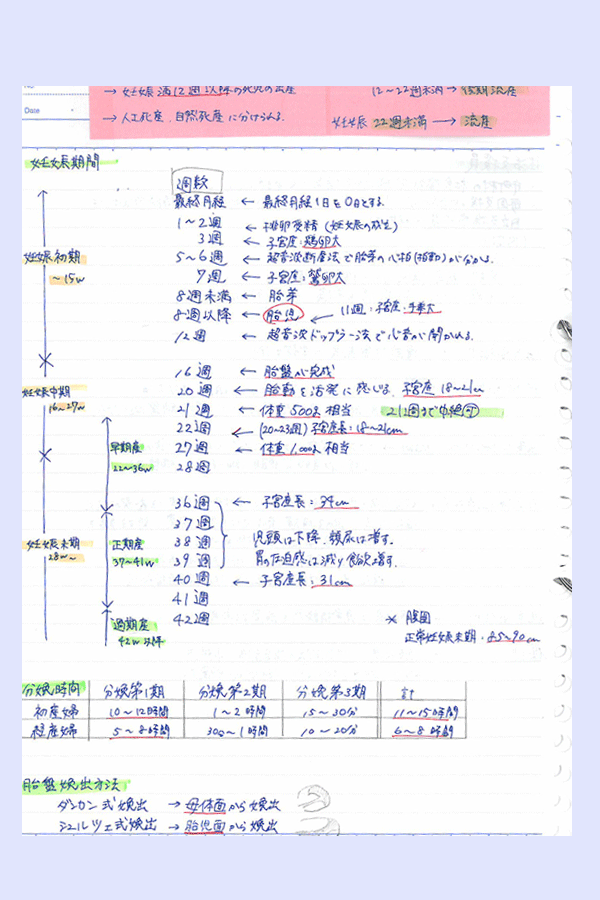 Date
→ 妊娠満12週以降の死児の出産
12〜22週未満 → 後期流産
→ 人工死産、自然死産に分けられる
妊娠 22週未満 → 流産
妊娠期間
週数
最終月経 ← 最終月経1日を0日とする。
1〜2週 ← 排卵受精(妊娠の成立)
3週 ← 子宮底:鶏卵大
妊娠初期
〜15w
5〜6週 ← 超音波断層法で胎芽の心拍(拍動)が分かる。
7週 ← 子宮底:鵞卵大
8週未満 ← 胎芽
8週以降 ← 胎児 ← 11週:子宮底:手拳大
12週 ← 超音波ドップラー法で心音が聞かれる。
16週 ← 胎盤が完成
妊娠中期
16〜27w
20週 ← 胎動を活発に感じる。子宮底 18〜21cm
21週 ← 体重500g相当 21週まで中絶可
22週 ← (20〜23週)子宮底長:18〜21cm
早期産
22〜36w
27週 ← 体重1,000g相当
28週
36週 ← 子宮底長:34cm
37週
38週
39週
児頭は下降、頻尿は増す。
胃の圧迫感は減り食欲増す。
妊娠末期
28w〜
正期産
37〜41w
40週 ← 子宮底長:31cm
41週
42週
過期産
42w以降
* 腹囲
正常妊娠末期:85〜90cm
分娩時間 分娩第1期 分娩第2期 分娩第3期 計
初産婦 10〜12時間 1〜2時間 15〜30分 11〜15時間
経産婦 5〜8時間 30分〜1時間 10〜20分 6〜8時間
胎盤娩出方法
ダンカン式娩出 → 母体面から娩出
シュルツェ式娩出 → 胎児面から娩出